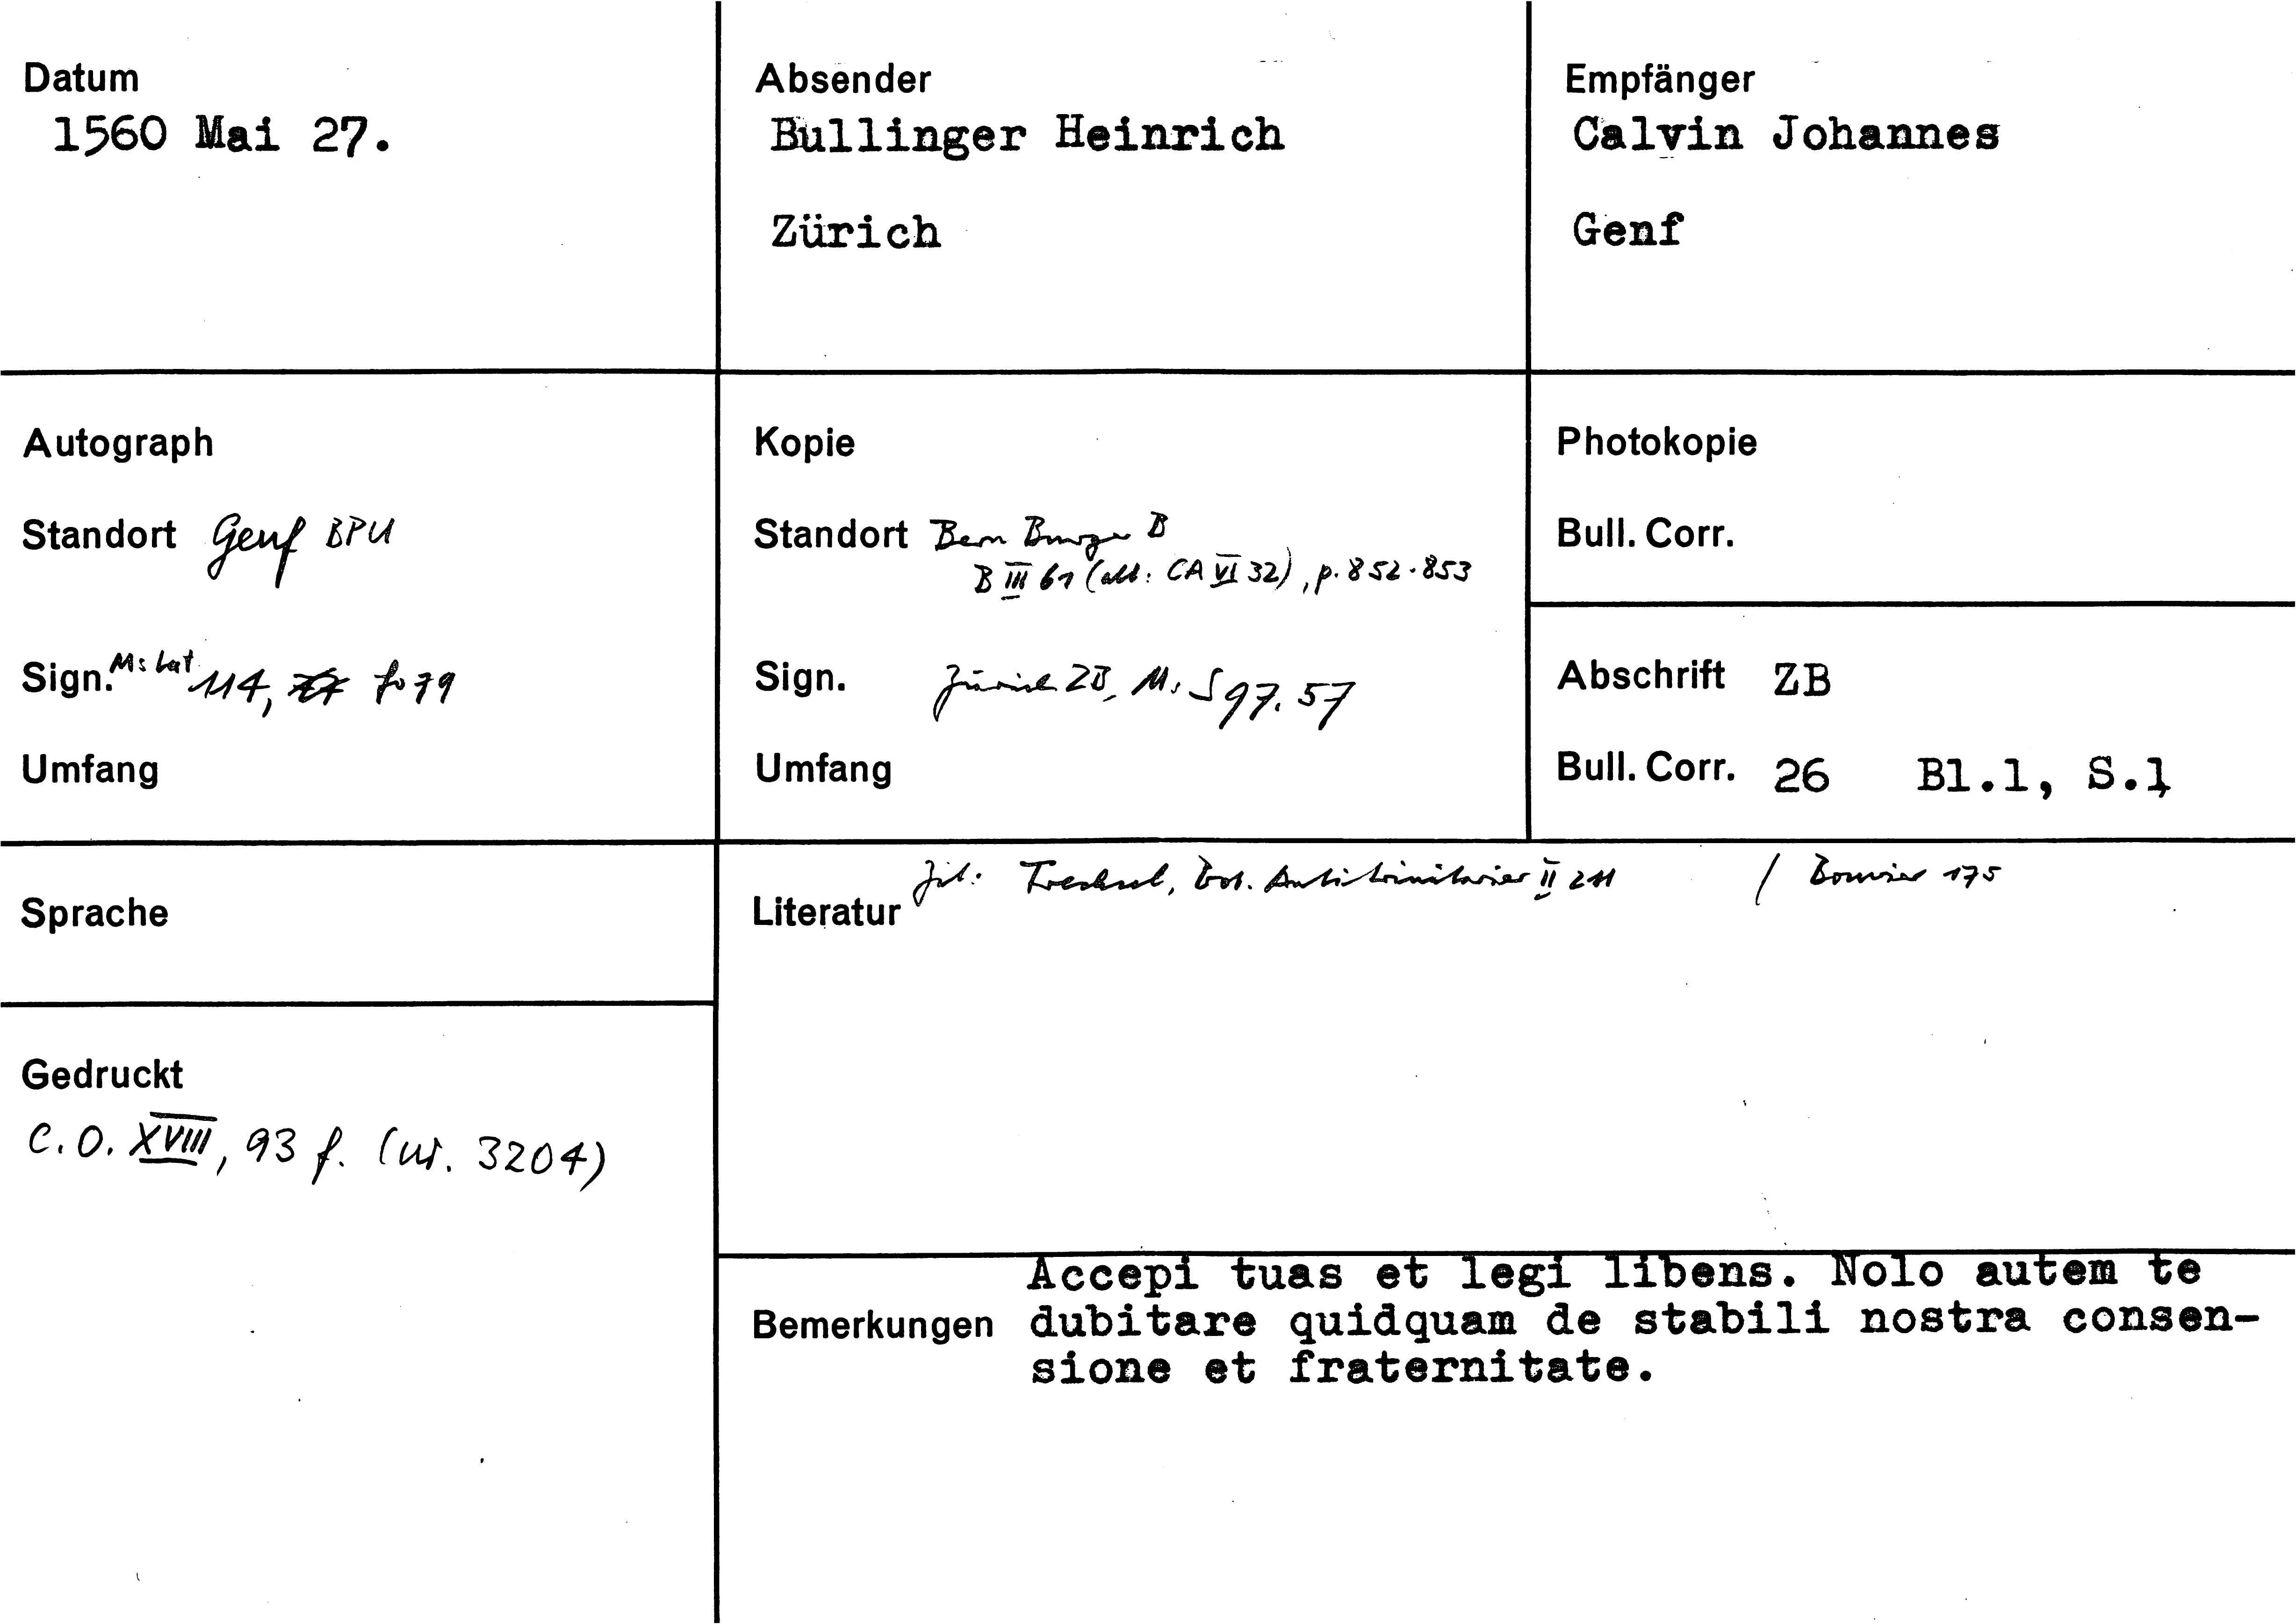 Datum
1560 Mai 27.
Absender
Bullinger Heinrich
Zürich
Empfänger
Calvin Johannes
Genf
Autograph
Standort Genf BPU
Sign. Ms Lat 114, fo 79
Umfang
Kopie
Standort Bern Burger B
B III 61 (alt: CA VI 32), p. 852-853
Sign. Zürich ZB, Ms S 97. 57
Umfang
Photokopie
Bull. Corr.
Abschrift ZB
Bull. Corr. 26 Bl.1, S.1
Sprache
Literatur Zit: Trechsel, Antitrinitarier II 211 / Bouvier 175
Gedruckt
C.O. XVIII, 93 f. (nr. 3204)
Bemerkungen
Accepi tuas et legi libens. Nolo autem te
dubitare quidquam de stabili nostra consen-
sione et fraternitate.